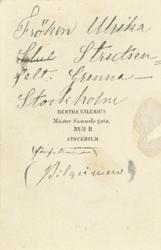 Fröken Ulrika
Strutsen=
felt. Grenna —
Stockholm
BERTHA VALERIUS
Mäster Samuels gata.
NUM II
STOCKHOLM